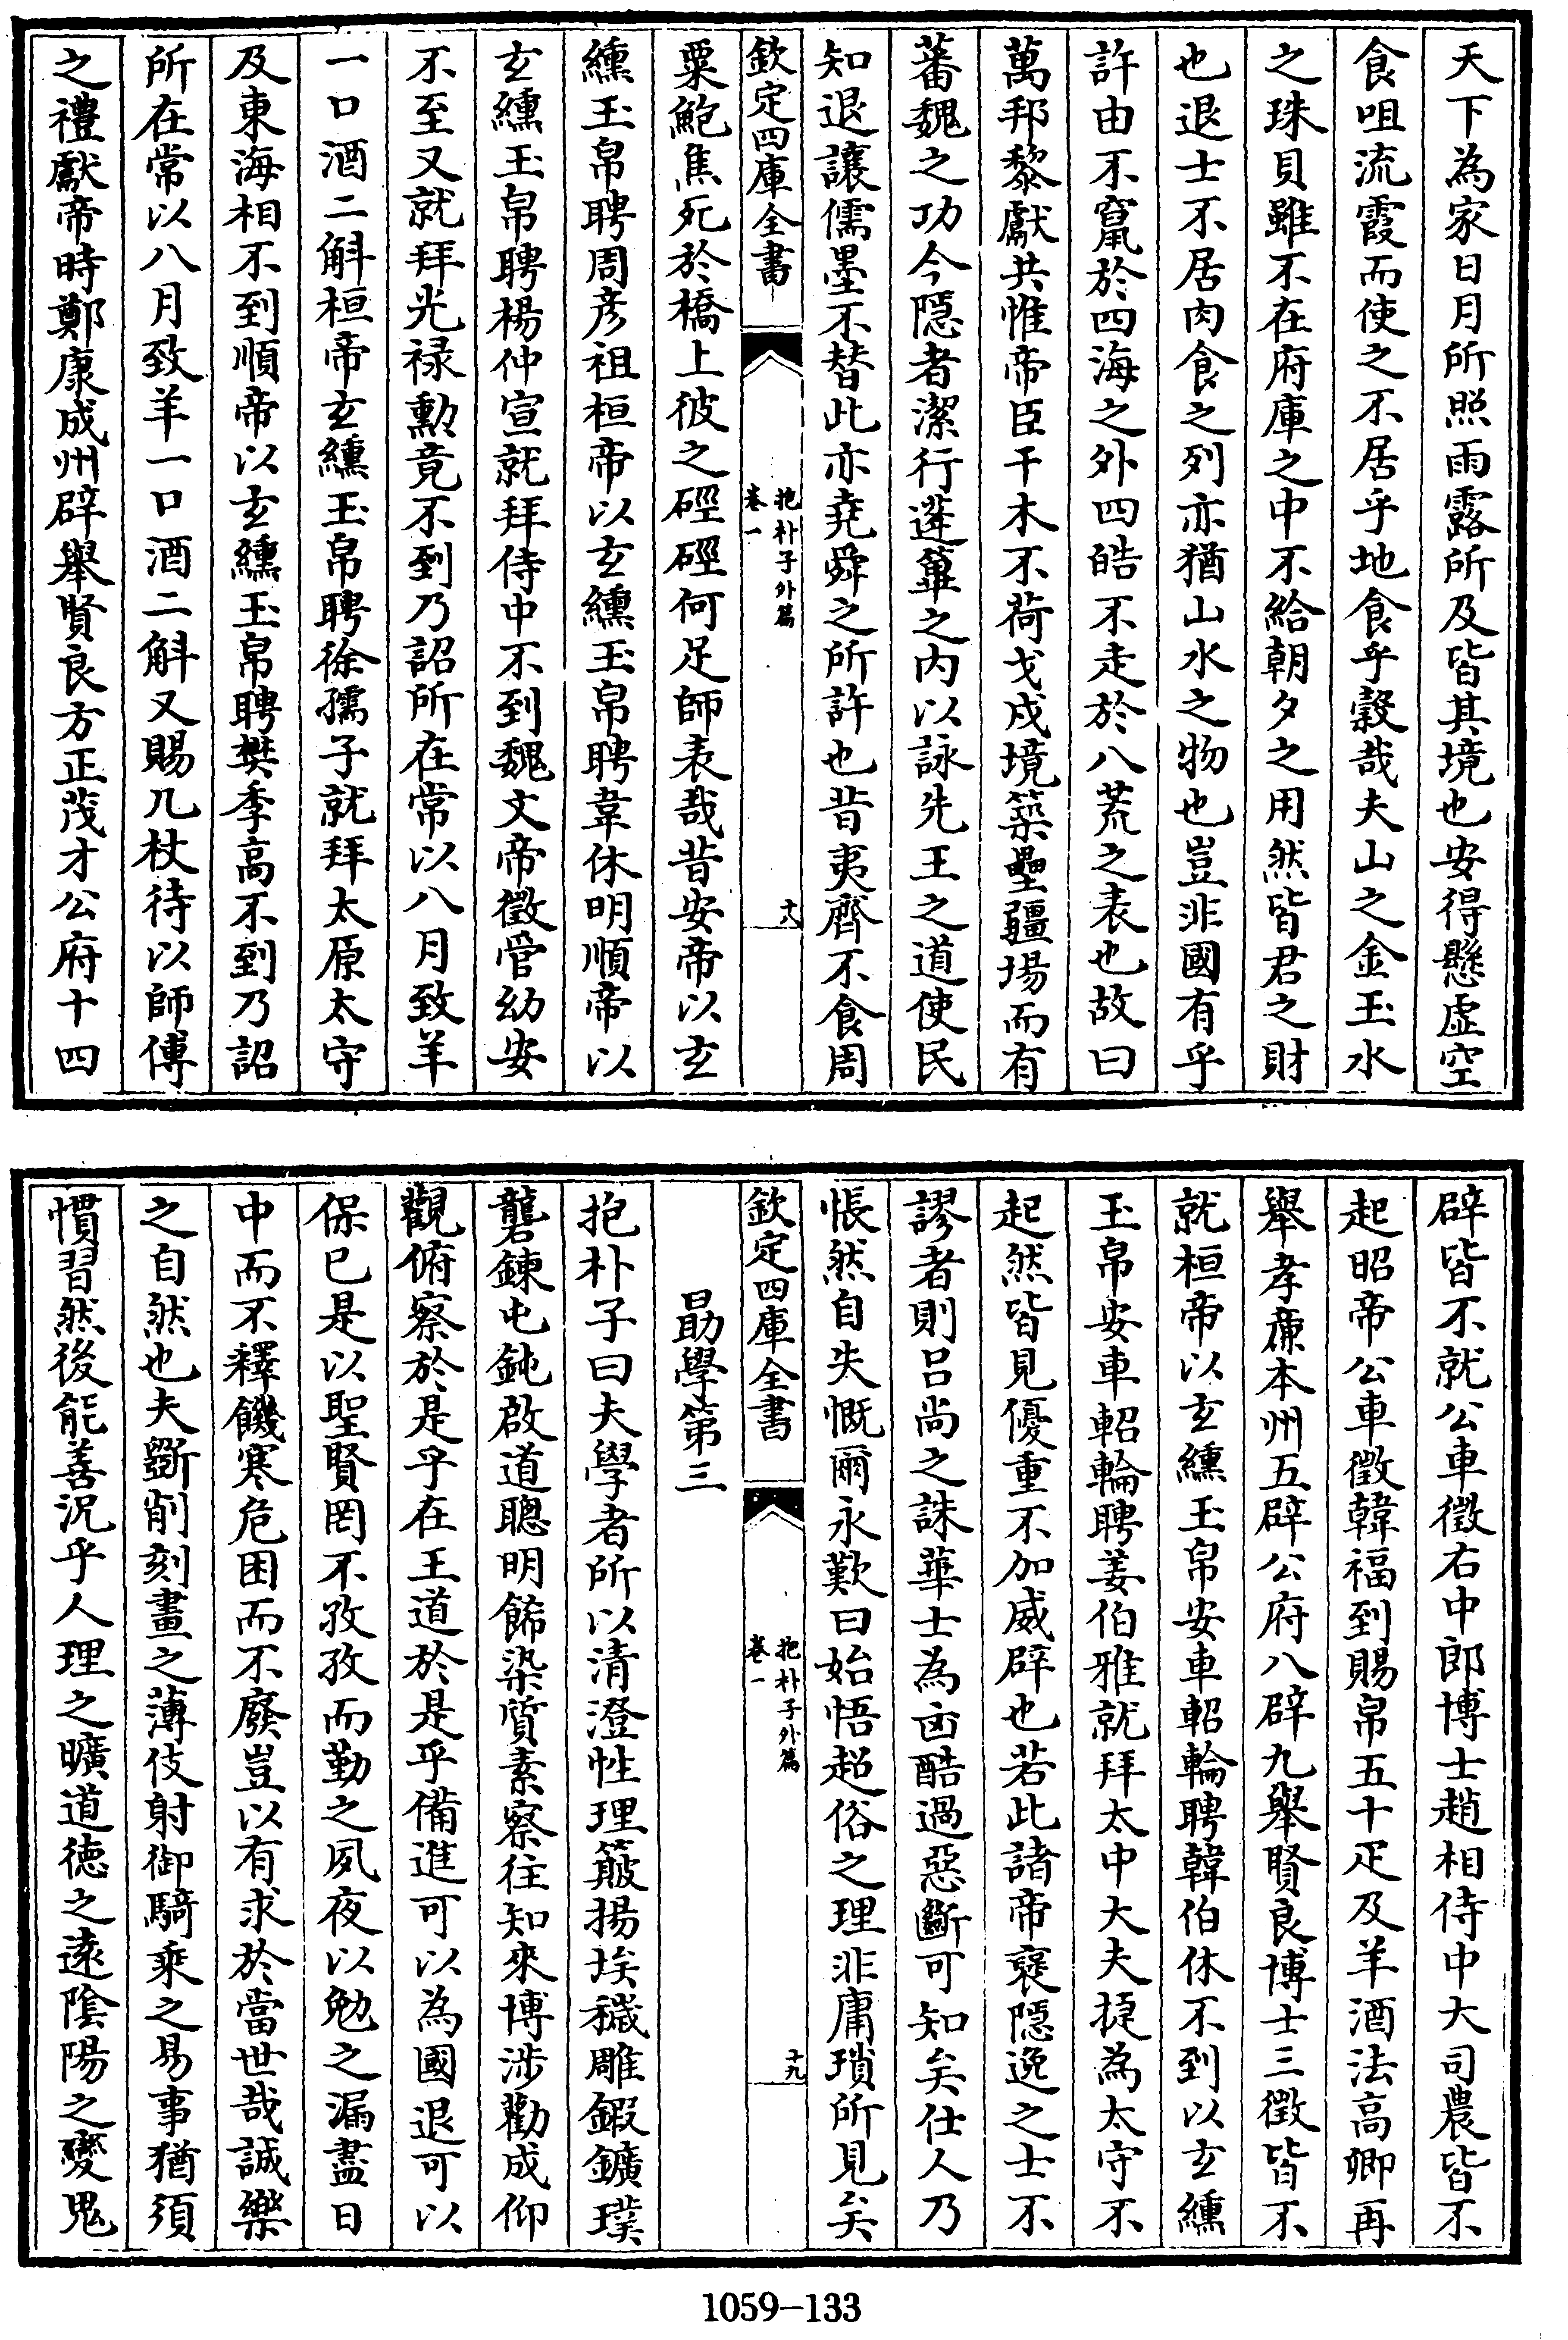 天下為家日月所照雨露所及皆其境也安得懸虛空
食咀流霞而使之不居乎地食乎穀哉夫山之金玉水
之珠貝雖不在府庫之中不給朝夕之用然皆君之財
也退士不居肉食之列亦猶山水之物也豈非國有乎
許由不竄於四海之外四皓不走於八荒之表也故曰
萬邦黎獻共惟帝臣干木不荷戈戍境築壘疆場而有
蕃魏之功今隱者潔行蓬蓽之內以詠先王之道使民
知退讓儒墨不替此亦堯舜之所許也昔夷齊不食周
欽定四庫全書
抱朴子外篇
卷一
十八
粟鮑焦死於橋上彼之硜硜何足師表哉昔安帝以玄
纁玉帛聘周彥祖桓帝以玄纁玉帛聘韋休明順帝以
玄纁玉帛聘楊仲宣就拜侍中不到魏文帝徵管幼安
不至又就拜光禄勳竟不到乃詔所在常以八月致羊
一口酒二斛桓帝玄纁玉帛聘徐孺子就拜太原太守
及東海相不到順帝以玄纁玉帛聘樊季高不到乃詔
所在常以八月致羊一口酒二斛又賜几杖待以師傅
之禮獻帝時鄭康成州辟舉賢良方正茂才公府十四
辟皆不就公車徵右中郎博士趙相侍中大司農皆不
起昭帝公車徵韓福到賜帛五十疋及羊酒法高卿再
舉孝廉本州五辟公府八辟九舉賢良博士三徵皆不
就桓帝以玄纁玉帛安車軺輪聘韓伯休不到以玄纁
玉帛安車軺輪聘姜伯雅就拜太中大夫揵為太守不
起然皆見優重不加威辟也若此諸帝襃隱逸之士不
謬者則呂尚之誅華士為凶酷過惡斷可知矣仕人乃
悵然自失慨爾永歎曰始悟超俗之理非庸瑣所見矣
欽定四庫全書
抱朴子外篇
卷一
十九
勗學第三
抱朴子曰夫學者所以清澄性理簸揚埃穢雕鍛鑛璞
礲鍊屯鈍啟道聰明飾染質素察往知來博涉勸成仰
觀俯察於是乎在王道於是乎備進可以為國退可以
保已是以聖賢罔不孜孜而勤之夙夜以勉之漏盡日
中而不釋饑寒危困而不廢豈以有求於當世哉誠樂
之自然也夫斵削刻畫之薄伎射御騎乘之易事猶須
慣習然後能善況乎人理之曠道德之遠陰陽之變鬼
1059-133